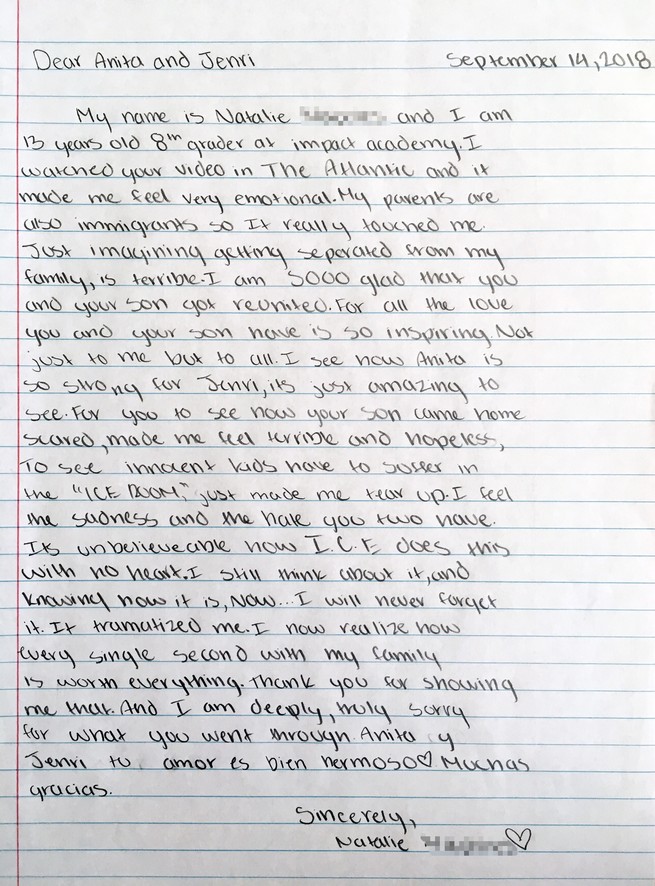 Dear Anita and Jenri September 14, 2018
My name is Natalie and I am
13 years old 8th grader at impact academy. I
watched your video in The Atlantic and it
made me feel very emotional. My parents are
also immigrants so It really touched me.
Just imagining getting seperated from my
family, is terrible. I am SOOO glad that you
and your son got reunited. For all the love
you and your son have is so inspiring. Not
just to me but to all. I see how Anita is
so strong for Jenri, its just amazing to
see. For you to see how your son came home
scared, made me feel terrible and hopeless,
To see innocent kids have to suffer in
the "ICE ROOM," just made me tear up. I feel
the sadness and the hate you two have.
Its unbelieveable how I.C.E does this
with no heart. I still think about it, and
knowing how it is, Now... I will never forget
it. It tramatized me. I now realize how
every single second with my family
is worth everything. Thank you for showing
me that. And I am deeply, truly sorry
for what you went through. Anita y
Jenri tu amor es bien hermoso♡ Muchas
gracias.
Sincerely,
Natalie ♡